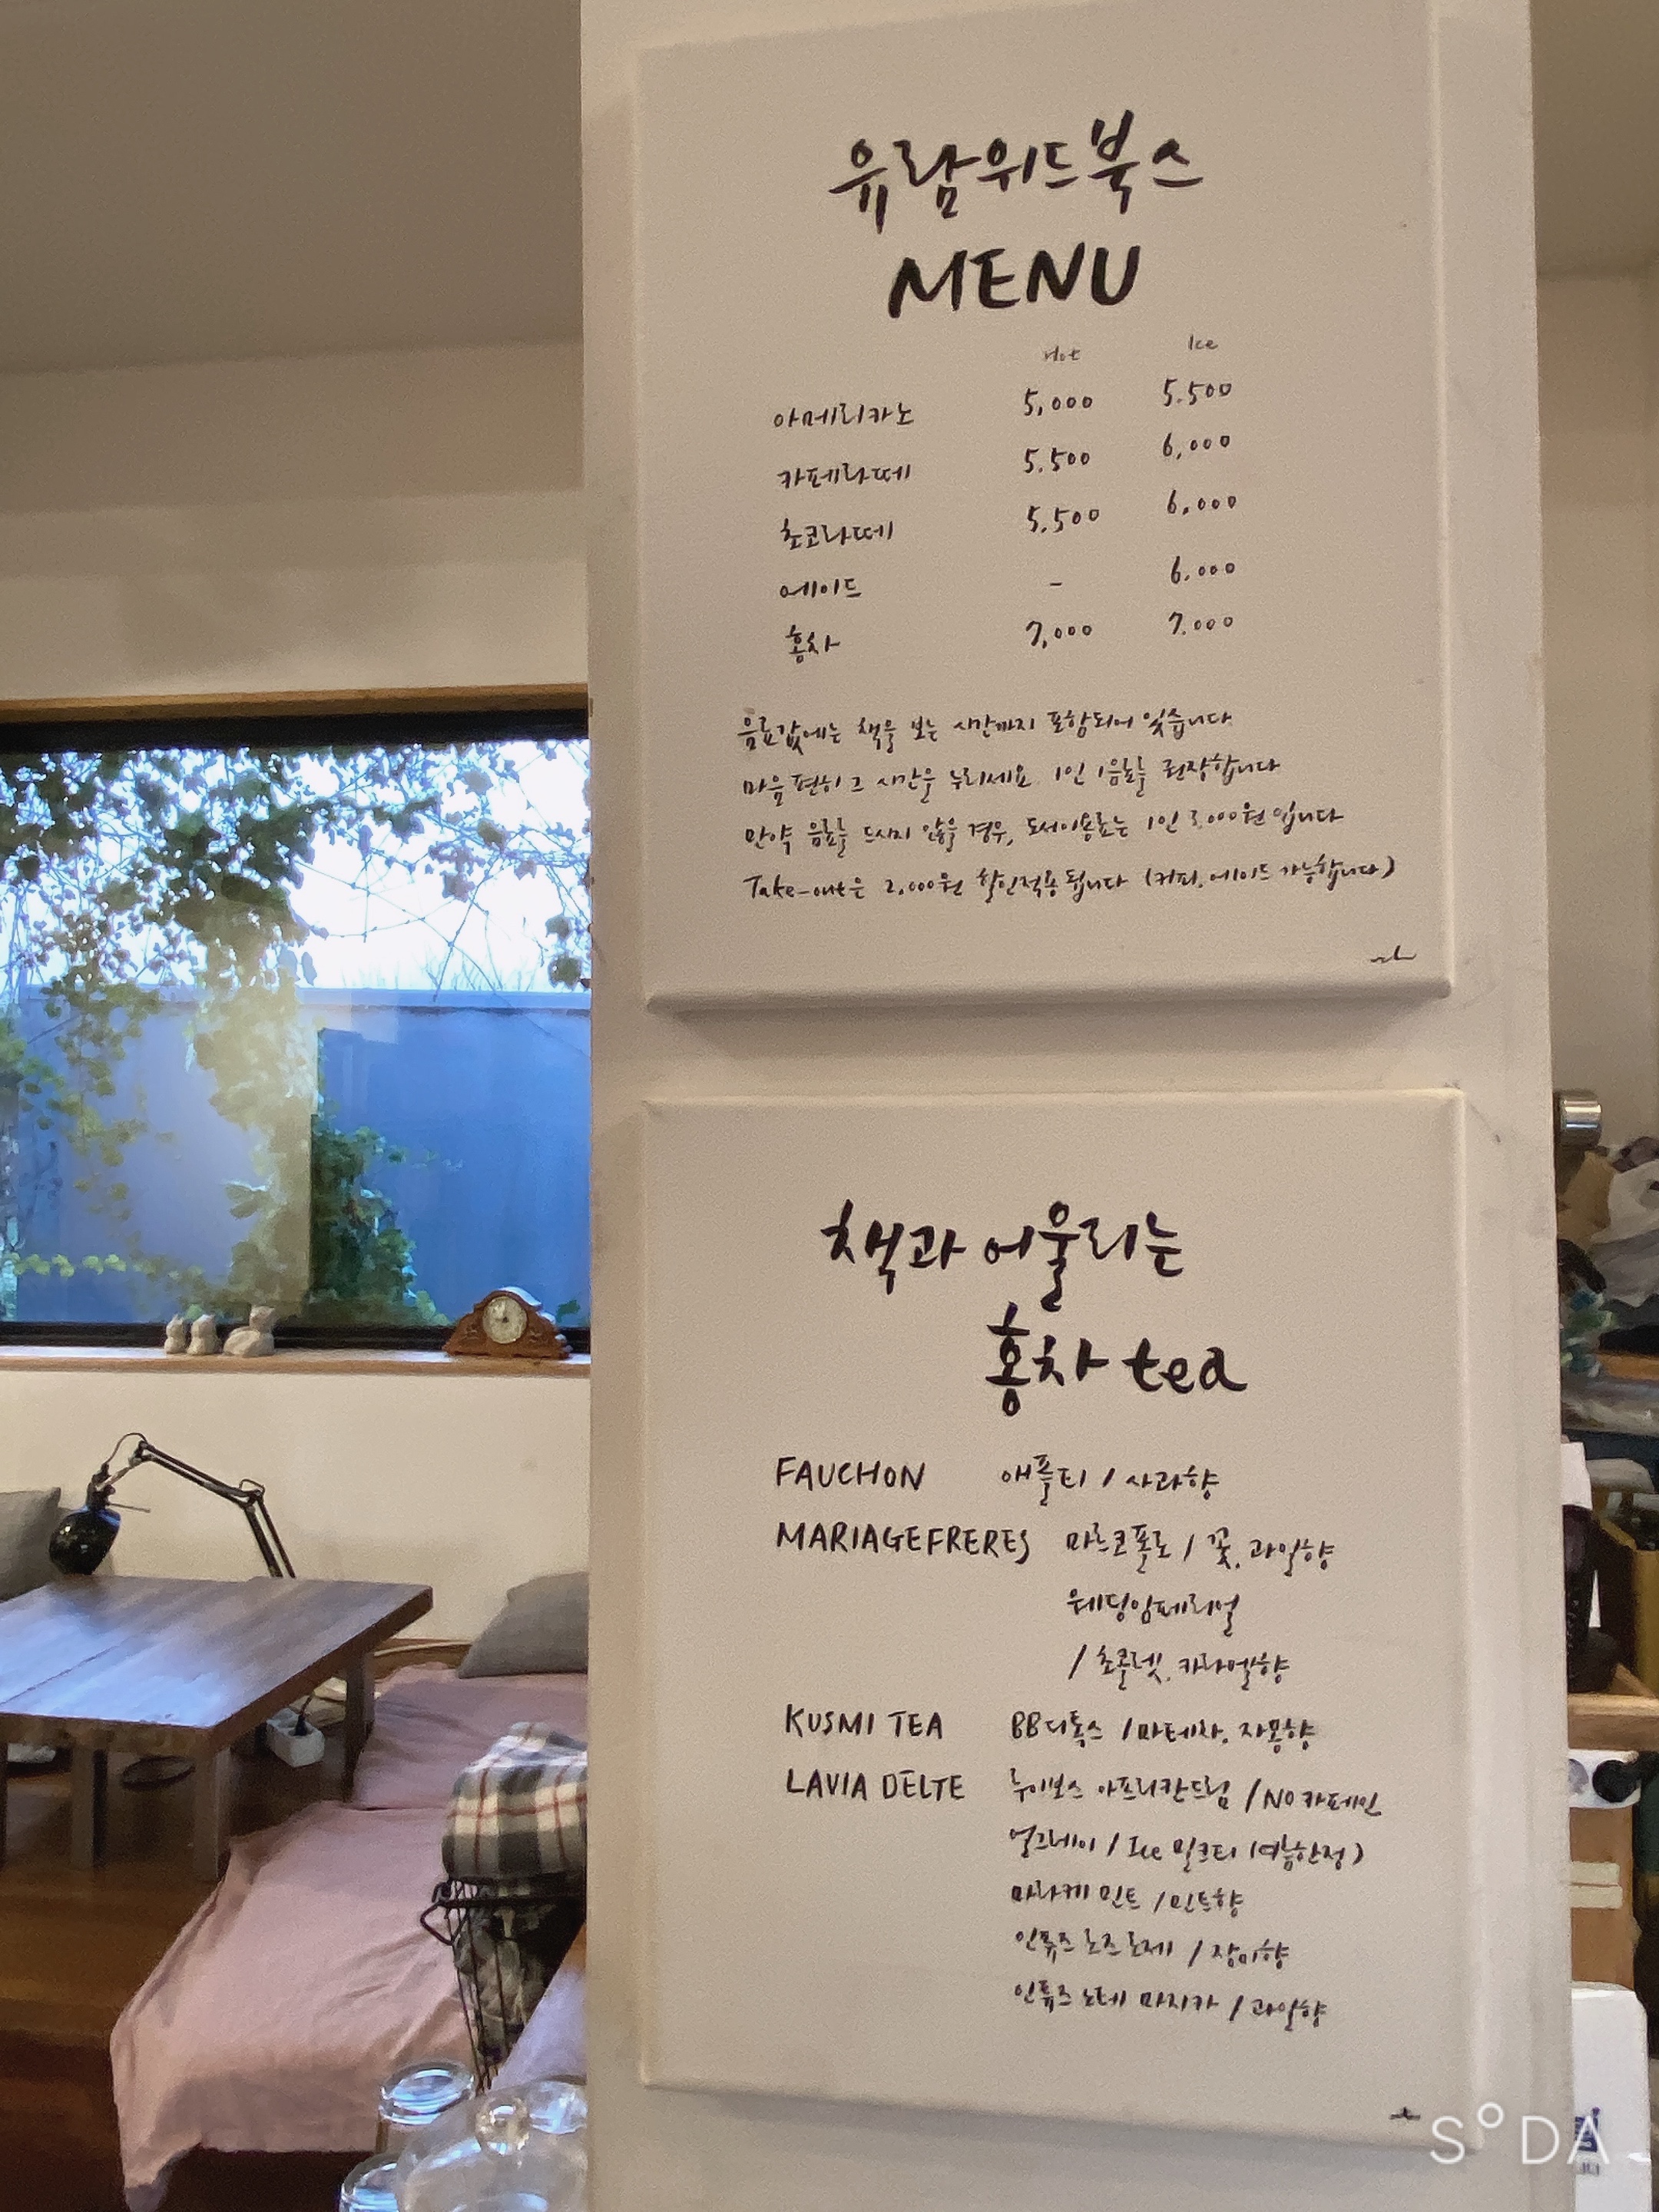 유람위드북스
MENU
Hot Ice
아메리카노 5,000 5.500
카페라떼 5.500 6,000
초코라떼 5,500 6,000
에이드 - 6,000
홍차 7,000 7.000
음료값에는 책을 보는 시간까지 포함되어 있습니다
마음 편히 그 시간을 누리세요 1인 1음료를 권장합니다
만약 음료를 드시지 않을 경우, 도서이용료는 1인 3,000원 입니다
Take-out은 2,000원 할인적용 됩니다 (커피, 에이드 가능합니다)
책과 어울리는
홍차 tea
FAUCHON 애플티 / 사과향
MARIAGEFRERES 마르코폴로 / 꽃, 과일향
웨딩임페리얼
/ 초콜렛, 카라멜향
KUSMI TEA BB디톡스 / 마테차, 자몽향
LAVIA DELTE 루이보스 아프리칸드림 / NO 카페인
얼그레이 / Ice 밀크티 (여름한정)
마라케 민트 / 민트향
인퓨즈 로즈 로제 / 장미향
인퓨즈 노테 마지카 / 과일향
SODA